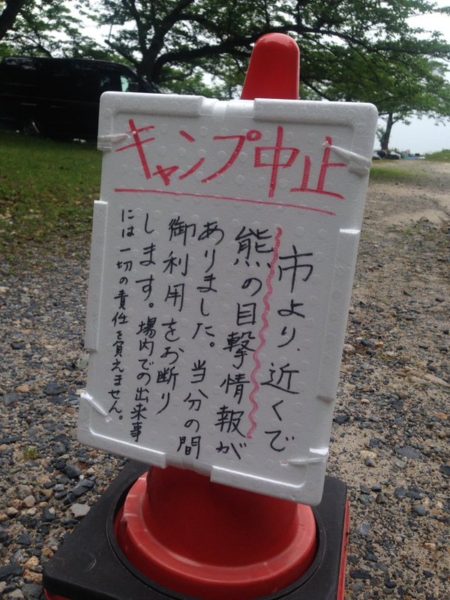 キャンプ中止
市より、近くで
熊の目撃情報が
ありました。当分の間
御利用をお断り
します。場内での出来事
には一切の責任を負えません。